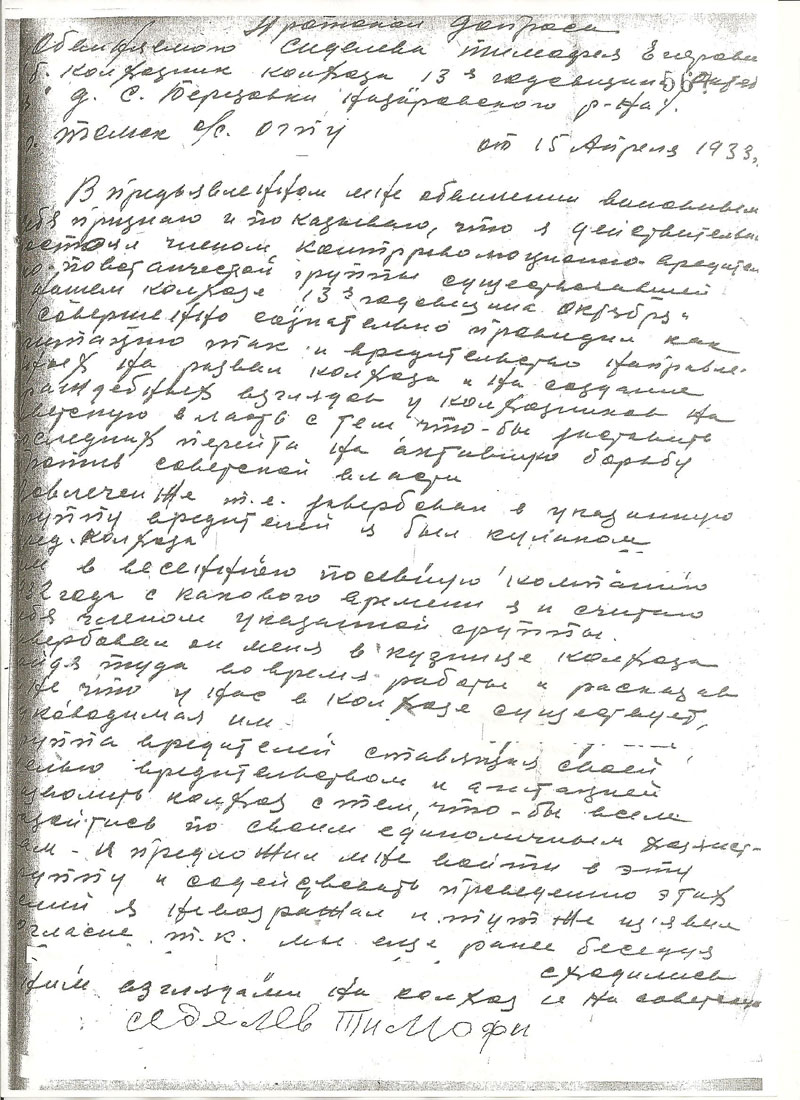 Протокол допроса
Обвиняемого Сиделева Тимофея Егорови
б. колхозник колхоза 13 я годовщина Октяб
д. с. Березовки Назаровского р-на.
56
г. Томск о/с. ОГПУ от 15 Апреля 1933г.
В предъявленном мне обвинении виновным
ебя признаю и показываю, что я действительн
остоял членом контрреволюционно-вредител
но-повстанческой группы существовавшей
нашем колхозе 13 я годовщина Октября"
совершенно сознательно проводил как
агитацию так и вредительство направле-
ных на развал колхоза и на создание
раждебных взглядов у колхозников на
оветскую власть с тем что-бы заставить
оследних перейти на активную борьбу
против советской власти
Вовлечен же т.е. завербован в указанную
руппу вредителей я был кулаком
ред. колхоза
м в весеннюю посевную компанию
32 года с какового времени я и считаю
ебя членом указанной группы.
авербовал он меня в кузнице колхоза
айдя туда во время работы и рассказав
не что у нас в колхозе существует,
уководимая им
руппа вредителей ставящая своей
елью вредительством и агитацией
азвалить колхоз с тем, что-бы всем
азойтись по своим единоличным хозяйст-
ам - и предложил мне войти в эту
руппу и содействовать проведению этих
елей я невозражал и тут же из'явил
огласие т.к. мы еще ранее беседуя
сходились
ним взглядами на колхоз и на советскую
Сиделев Тимофи